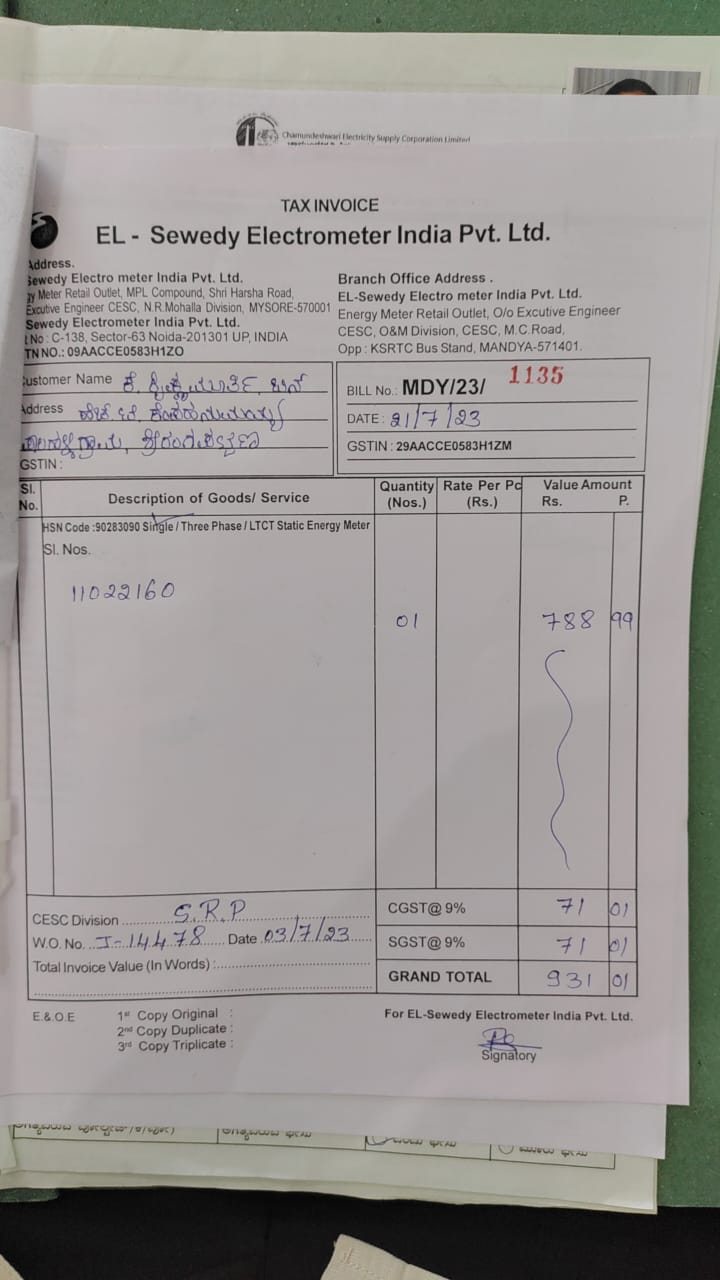 Chamundeshwari Electricity Supply Corporation Limited
TAX INVOICE
EL - Sewedy Electrometer India Pvt. Ltd.
Address.
Sewedy Electro meter India Pvt. Ltd.
gy Meter Retail Outlet, MPL Compound, Shri Harsha Road,
Excutive Engineer CESC, N.R.Mohalla Division, MYSORE-570001
Sewedy Electrometer India Pvt. Ltd.
t No : C-138, Sector-63 Noida-201301 UP, INDIA
TN NO.: 09AACCE0583H1ZO
Branch Office Address .
EL-Sewedy Electro meter India Pvt. Ltd.
Energy Meter Retail Outlet, O/o Excutive Engineer
CESC, O&M Division, CESC, M.C.Road,
Opp : KSRTC Bus Stand, MANDYA-571401.
Customer Name ಕೆ.
Address
GSTIN :
BILL No.: MDY/23/ 1135
DATE : 21/7/23
GSTIN : 29AACCE0583H1ZM
Sl. No. Description of Goods/ Service Quantity (Nos.) Rate Per Pc (Rs.) Value Amount Rs. P.
HSN Code :90283090 Single / Three Phase / LTCT Static Energy Meter
Sl. Nos.
11022160
01 788 99
CESC Division S.R.P
W.O. No. I-14478 Date 03/7/23
Total Invoice Value (In Words) :
CGST@ 9% 71 01
SGST@ 9% 71 01
GRAND TOTAL 931 01
E.&.O.E 1st Copy Original :
2nd Copy Duplicate :
3rd Copy Triplicate :
For EL-Sewedy Electrometer India Pvt. Ltd.
Signatory